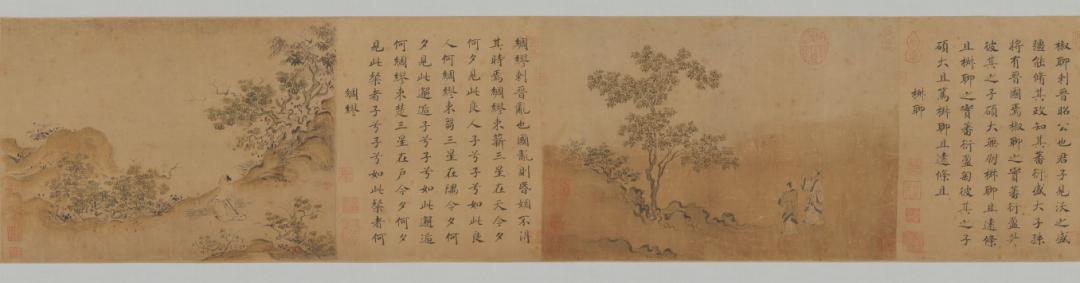 椒聊刺晉昭公也君子見沃之盛
彊能脩其政知其蕃衍盛大子孫
將有晉國焉椒聊之實蕃衍盈升
彼其之子碩大無朋椒聊且遠條
且椒聊之實蕃衍盈匊彼其之子
碩大且篤椒聊且遠條且
椒聊
綢繆刺晉亂也國亂則昏姻不得
其時焉綢繆束薪三星在天今夕
何夕見此良人子兮子兮如此良
人何綢繆束芻三星在隅今夕何
夕見此邂逅子兮子兮如此邂逅
何綢繆束楚三星在戶今夕何夕
見此粲者子兮子兮如此粲者何
綢繆